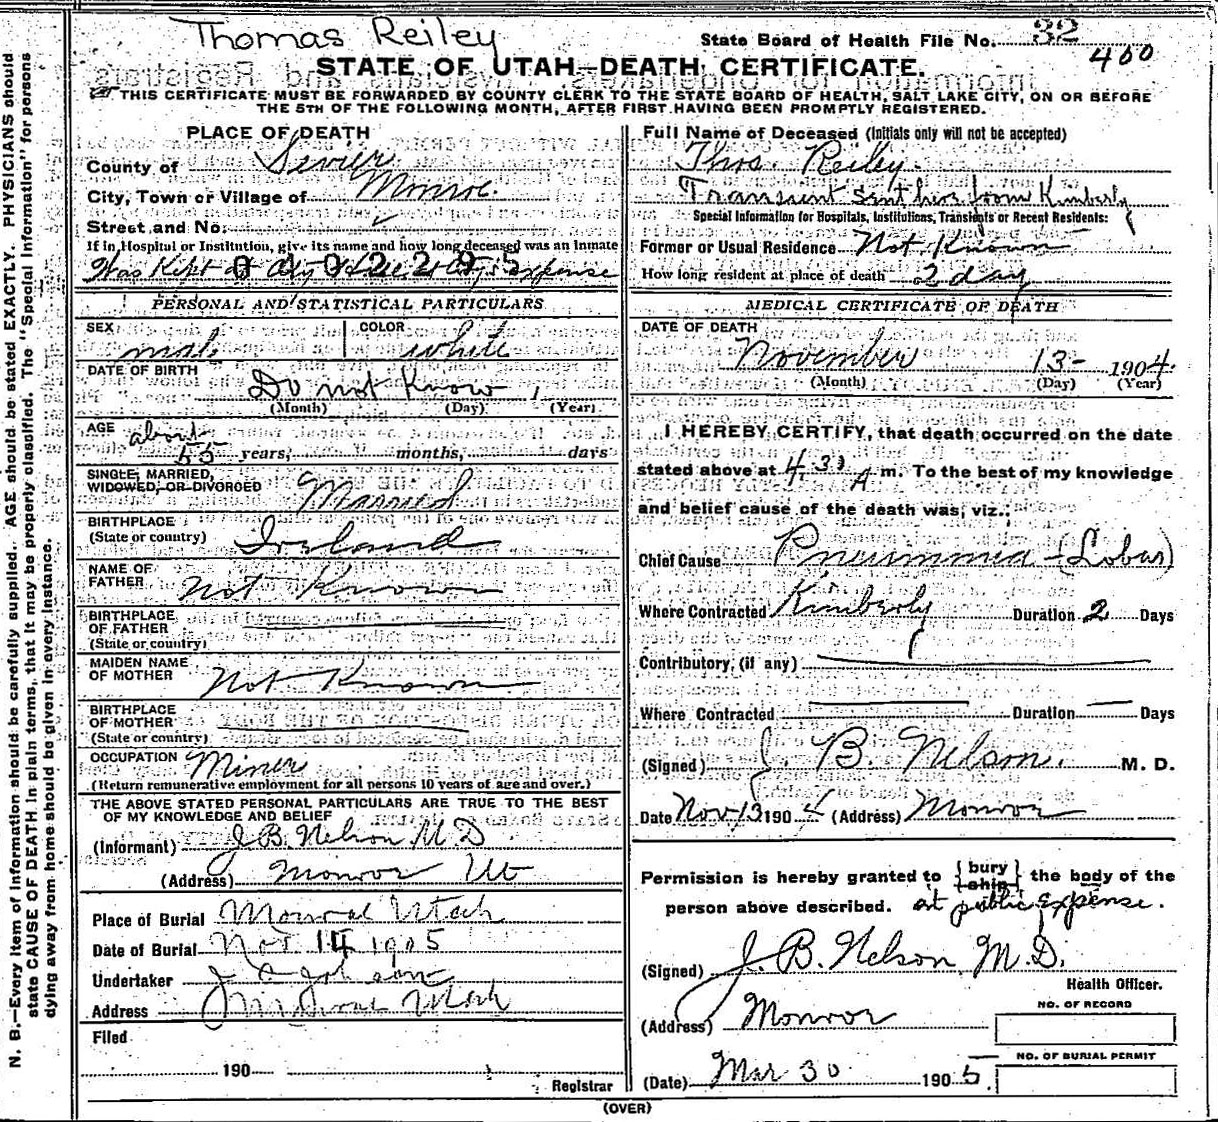 Thomas Reiley
State Board of Health File No. 32
460
STATE OF UTAH—DEATH CERTIFICATE.
THIS CERTIFICATE MUST BE FORWARDED BY COUNTY CLERK TO THE STATE BOARD OF HEALTH, SALT LAKE CITY, ON OR BEFORE
THE 5TH OF THE FOLLOWING MONTH, AFTER FIRST HAVING BEEN PROMPTLY REGISTERED.
PLACE OF DEATH
County of Sevier
City, Town or Village of Monroe
Street and No.
If in Hospital or Institution, give its name and how long deceased was an Inmate
Was Kept at expense
0102295
PERSONAL AND STATISTICAL PARTICULARS
SEX male COLOR white
DATE OF BIRTH Do not Know
(Month) (Day) (Year)
AGE about 55 years, months, days
SINGLE, MARRIED,
WIDOWED, OR DIVORCED Married
BIRTHPLACE
(State or country) Irland
NAME OF
FATHER Not Known
BIRTHPLACE
OF FATHER
(State or country)
MAIDEN NAME
OF MOTHER Not Known
BIRTHPLACE
OF MOTHER
(State or country)
OCCUPATION Miner
(Return remunerative employment for all persons 10 years of age and over.)
THE ABOVE STATED PERSONAL PARTICULARS ARE TRUE TO THE BEST
OF MY KNOWLEDGE AND BELIEF
(Informant) J B. Nelson M D
(Address) Monroe Ut
Place of Burial Monroe Utah
Date of Burial Nov 14 1905
Undertaker
Address Monroe Utah
Filed
190
Registrar
Full Name of Deceased (Initials only will not be accepted)
Thos. Reiley.
Transient Sent here from Kimberly
Special Information for Hospitals, Institutions, Transients or Recent Residents:
Former or Usual Residence Not Known
How long resident at place of death 2 day
MEDICAL CERTIFICATE OF DEATH
DATE OF DEATH
November 13- 1904.
(Month) (Day) (Year)
I HEREBY CERTIFY, that death occurred on the date
stated above at 4 30 A m. To the best of my knowledge
and belief cause of the death was, viz.:
Chief Cause Pneumonia - (Lobar)
Where Contracted Kimberly Duration 2 Days
Contributory, (if any)
Where Contracted Duration Days
(Signed) J. B. Nelson. M. D.
Date Nov 13 1904 (Address) Monroe
Permission is hereby granted to {bury ship} the body of the
person above described. at public Expense.
(Signed) J. B. Nelson M.D.
Health Officer.
(Address) Monroe
NO. OF RECORD
NO. OF BURIAL PERMIT
(Date) Mar 30 1905.
(OVER)
N. B.—Every item of information should be carefully supplied. AGE should be stated EXACTLY. PHYSICIANS should
state CAUSE OF DEATH in plain terms, that it may be properly classified. The "Special Information" for persons
dying away from home should be given in every instance.